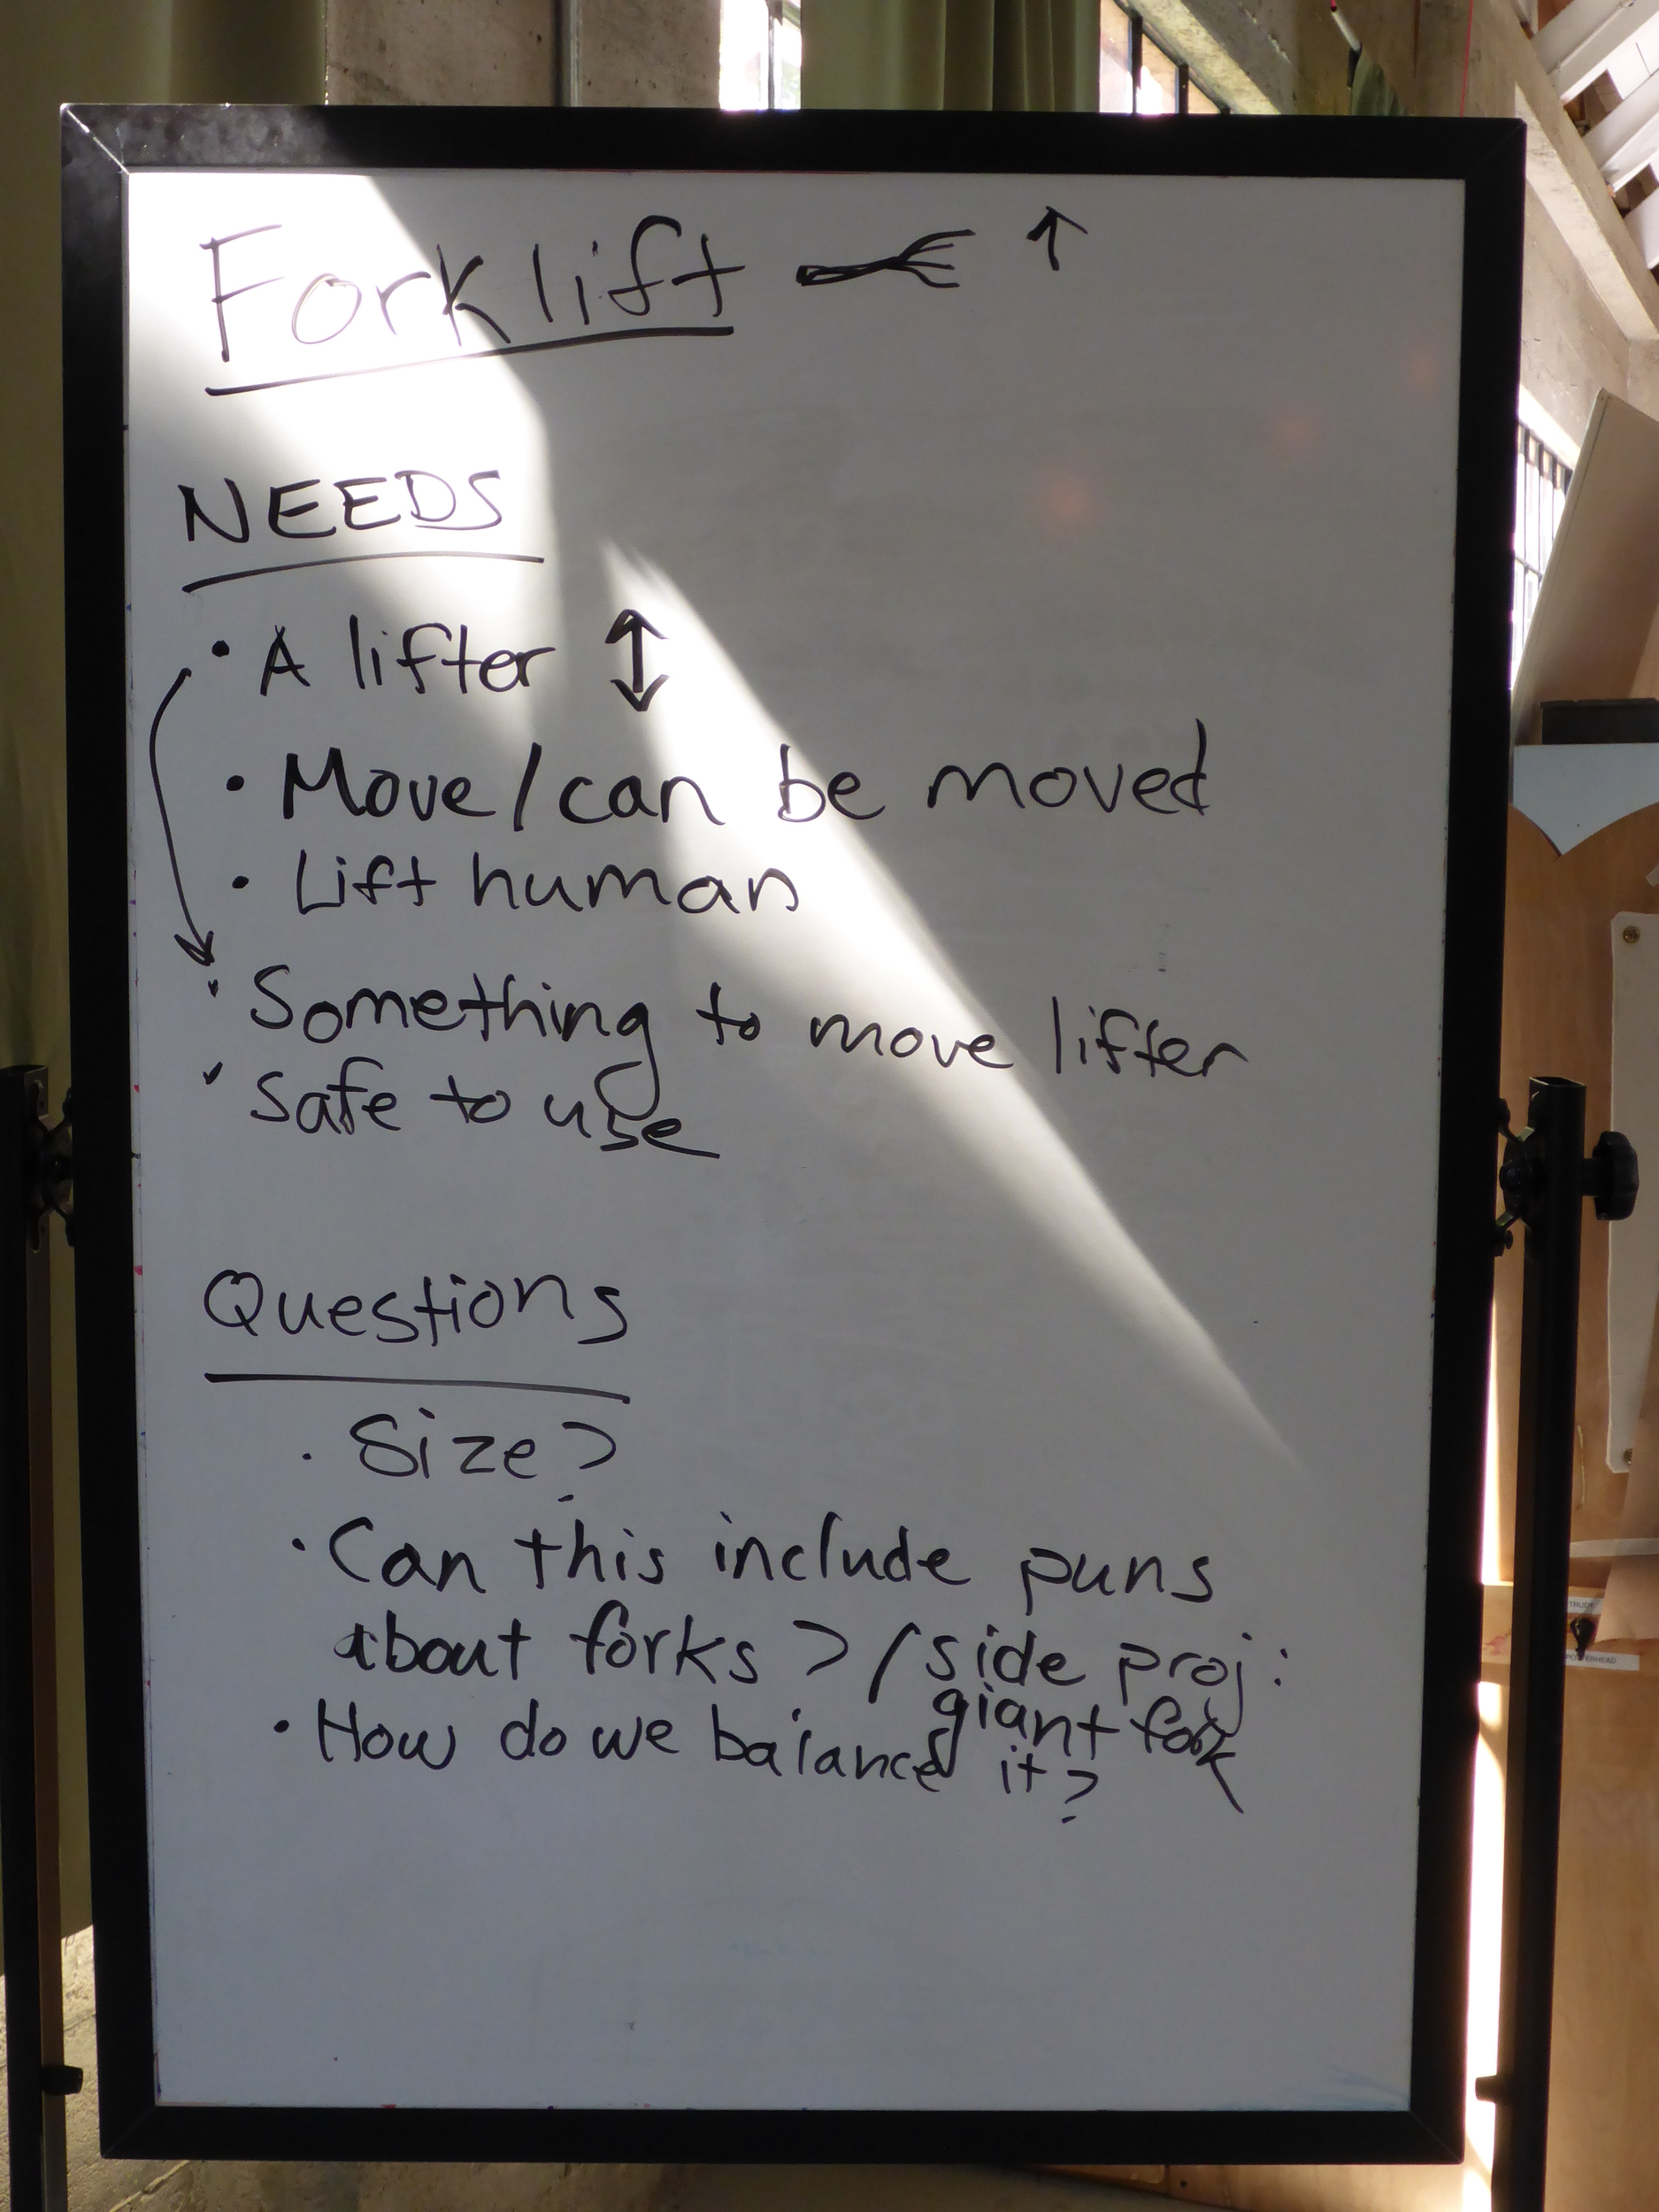 Forklift ↑
NEEDS
• A lifter ↕
• Move/can be moved
• Lift human
• Something to move lifter
• Safe to use
Questions
• Size?
• Can this include puns
about forks?/side proj:
giant fork
• How do we balance it?
TRUDE
POWERHEAD